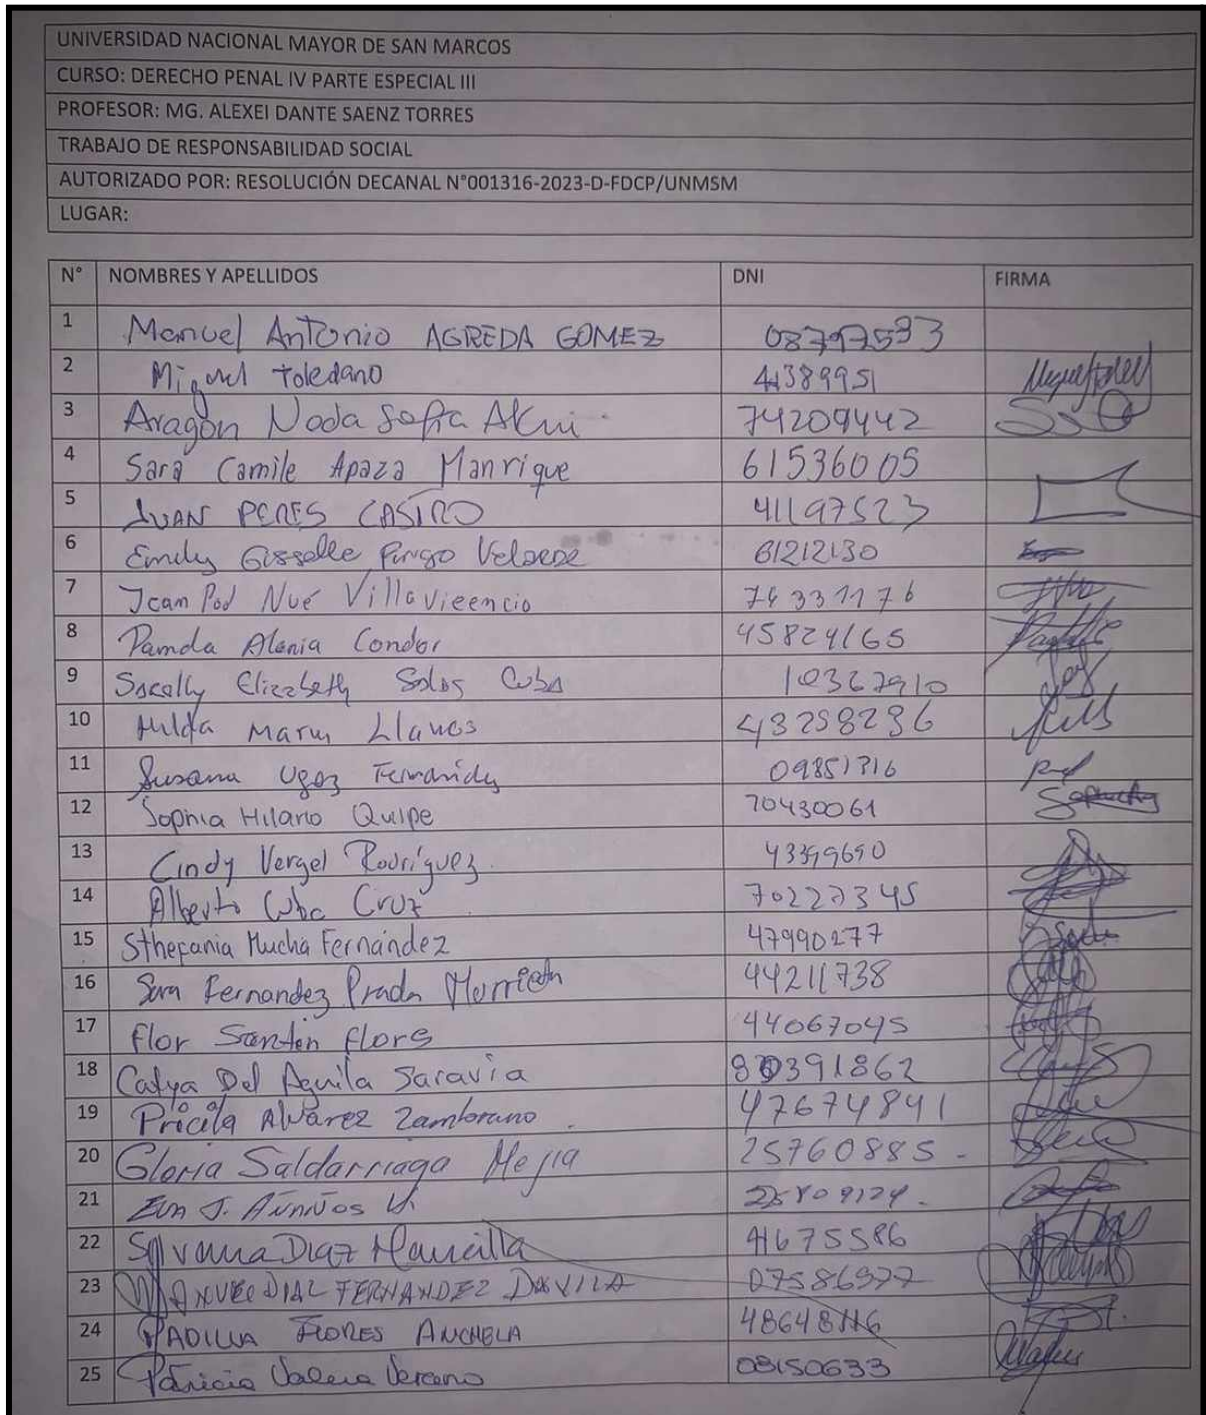 UNIVERSIDAD NACIONAL MAYOR DE SAN MARCOS
CURSO: DERECHO PENAL IV PARTE ESPECIAL III
PROFESOR: MG. ALEXEI DANTE SAENZ TORRES
TRABAJO DE RESPONSABILIDAD SOCIAL
AUTORIZADO POR: RESOLUCIÓN DECANAL N°001316-2023-D-FDCP/UNMSM
LUGAR:
N° NOMBRES Y APELLIDOS DNI FIRMA
1 Manuel Antonio AGREDA GOMEZ 08797593
2 Miguel Toledano 41389951
3 Aragón Noda Sofia Akmi 74209442
4 Sara Camile Apaza Manrique 61536005
5 JUAN PERES CASTRO 41197523
6 Emily Gisselle Pingo 61212130
7 Jean Pod Nué Villavicencio 74331176
8 Pamela Alania Condor 45824165
9 Elizabeth Solos Cuba 10367910
10 Hilda Marin Llanos 43258296
11 Susana Ugaz 09851316
12 Sophia Hilario Quipe 70430061
13 Cindy Vergel Rodríguez. 43399690
14 Alberto Cuba Cruz 70227345
15 Sthefania Mucha Fernández 47990277
16 Sara Fernandez Prada 44211738
17 Flor Santen flores 44067045
18 Catya Del Aguila Saravia 80391862
19 Pricila Alvarez Zambrano. 47674841
20 Gloria Saldarriaga Mejia 25760885-
21 J.
22 Silvana Diaz Mancilla 41675586
23 FERNANDEZ DAVILA 07586977
24 PADILLA FLORES 48648116
25 Patricia Valera Verano 08150633